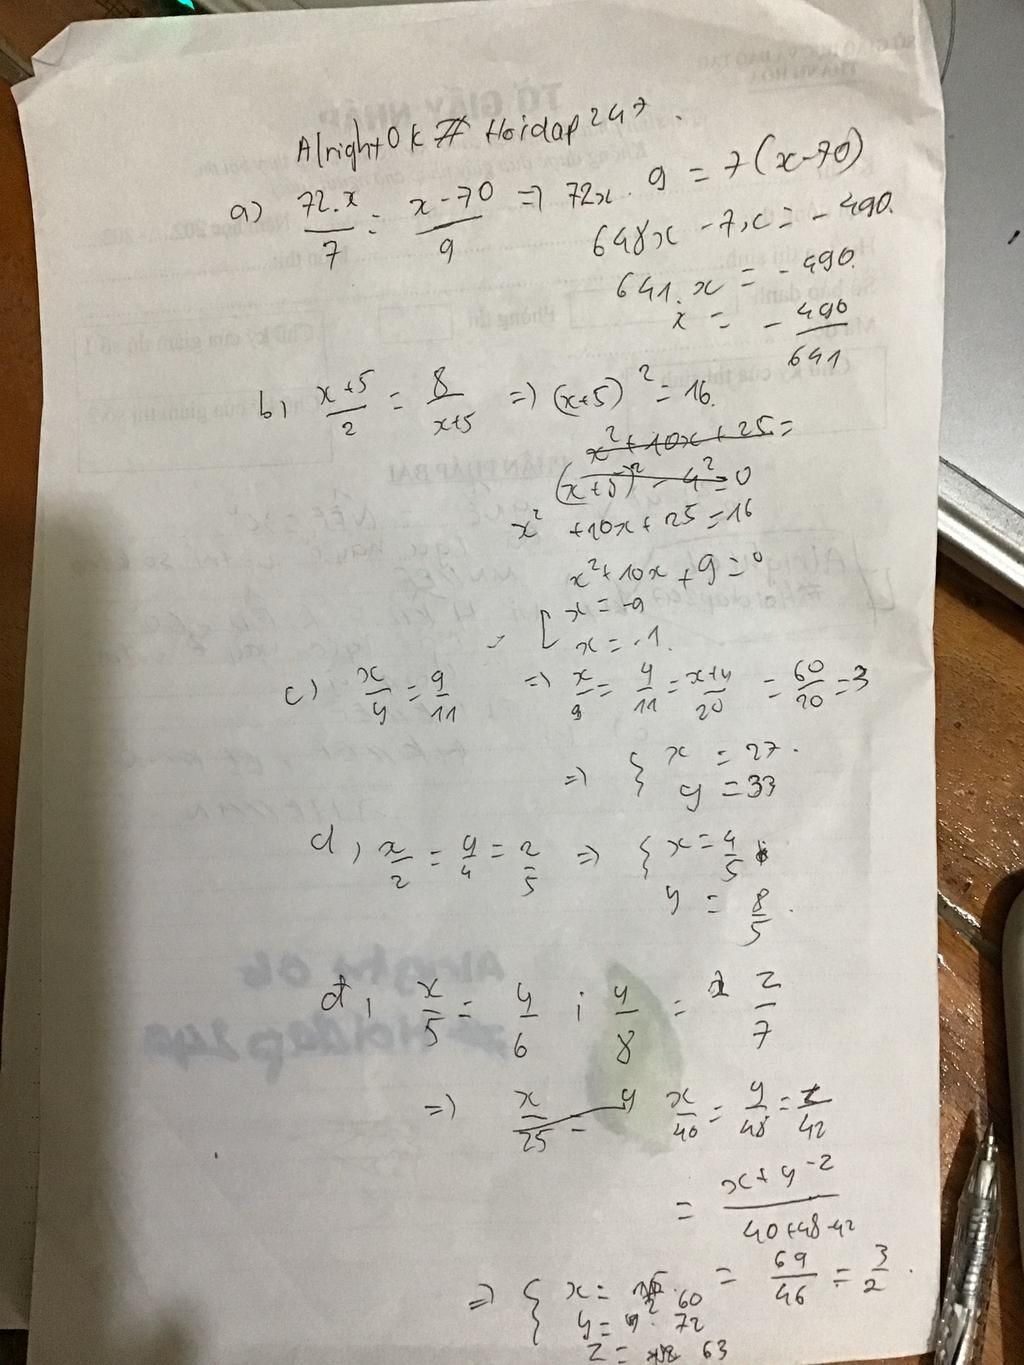 AlrightOk # Hoidap247.
a) 72.x/7 = x-70/9 => 72x. 9 = 7(x-70)
648x - 7x = - 490.
641.x = - 490.
x = - 490/641
b, x+5/2 = 8/x+5 => (x+5)² = 16.
x² + 10x + 25 =
(x+5)² - 4² = 0
x² + 10x + 25 = 16
x² + 10x + 9 = 0
[ x = -9
x = -1.
c) x/y = 9/11 => x/9 = y/11 = x+y/20 = 60/20 = 3
=> { x = 27.
y = 33
d, x/2 = y/4 = 2/5 => { x = 4/5
y = 8/5.
đ, x/5 = y/6 ; y/8 = z/7
=> x/25 = y x/40 = y/48 = z/42
= x+y-z/40+48-42
= 69/46 = 3/2.
=> { x = 60
y = 72
z = 63